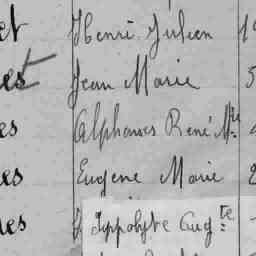 et Henri Julien 1
es Jean Marie 5
es Alphonses René Mie
es Eugene Marie 2
es Hyppolyte Augte